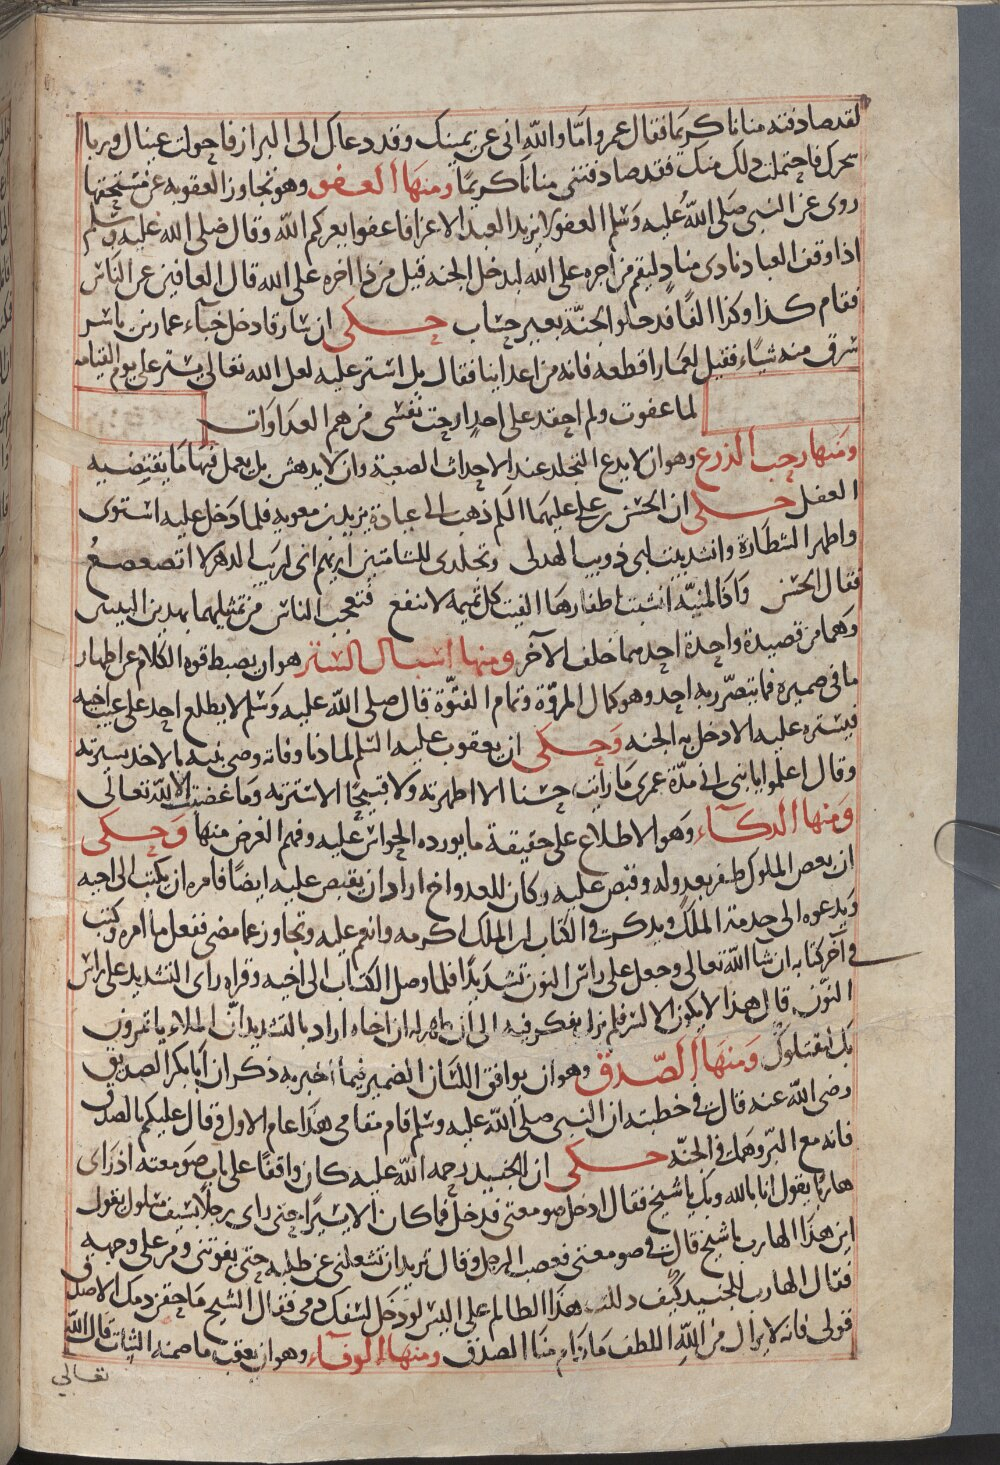 لقد صادفته منانا كريما فقال عمرو اما والله انى عن يمينك وقد دعاك الى البراز فاحولت عينال وربا
تحرك فاحتملت ذلك منك فقد صادفتنى منانا كريما ومنها العفو وهو تجاوز العقوبه عن مستحقها
روى عن النبى صلى الله عليه وسلم العفو لا يزيد العبد الا عزا فاعفوا يعزكم الله وقال صلى الله عليه وسلم
اذا وقف العباد نادى مناد ليقم من اجره على الله ليدخل الجنه قيل من ذا اجره على الله قال العافين عن الناس
فقام كذا وكذا الفا فدخلوا الجنة بغير حساب حكى ان سارقا دخل خباء عمار بن ياسر
سرق منه شياء فقيل لعمار اقطعه فانه من اعداينا فقال بل استر عليه لعل الله تعالى يستر على يوم القيامه
لما عفوت ولم احقد على احد ارحت نفسى من هم العداوات
ومنها رحب الذرع وهو ان لا يدع التجلد عند الاحداث الصعبة وان لا يدهش بل يعمل فيها ما يقتضيه
العقل حكى ان الحسن بن على عليهما السلم ذهب الى عيادة يزيد بن معويه فلما دخل عليه استوى
واظهر الشطارة وانشد بيت ابى ذويب الهدلى وتجلدى للشامتين اريهم انى لريب الدهر لا اتضعضع
فقال الحسن واذا المنية انشبت اظفارها الفيت كل تميمه لا تنفع فتعجب الناس من تمثيلهما بهذين البيتين
وهما من قصيدة واحدة احدهما خلف الآخر ومنها اسبال الستر هو ان يضبط قوه الكلام عن اظهار
ما فى ضميره فما يتضرر به احد وهو كمال المروة وتمام الفتوة قال صلى الله عليه وسلم لا يطلع احد على عيب اخيه
فيستره عليه الا دخل به الجنه وحكى ان يعقوب عليه السلم لما دنا وفاته وصى بنيه بالاحد سيرته
وقال اعلموا يا بنى انى مدة عمرى ما رايت حسنا الا اظهرته ولا قبيحا الا سترته وما غضبت الا لله تعالى
ومنها الذكآء وهو الاطلاع على حقيقة ما يورده الحواس عليه وفهم الغرض منها وحكى
ان بعض الملوك ظفر بعدوله وقبض عليه وكان للعدو اخ اراد ان يقبض عليه ايضا فامره ان يكتب الى اخيه
ويدعوه الى خدمة الملك ويذكر فى الكتاب ان الملك اكرمه وانعم عليه وتجاوز عما مضى ففعل ما امره وكتب
فى آخر كتابه ان شا الله تعالى وجعل على راس النون تشديدا فلما وصل الكتاب الى اخيه وقراه راى التشديد على راس
النون قال هذا لا يكون الا لسر فلم يزل يفكر فيه الى ان ظهر له ان اخاه اراد بالتشديد ان الملاء ياتمرون
بك ليقتلوك ومنها الصدق وهو ان يوافق اللسان الضمير فيما اخبر به ذكر ان ابا بكر الصديق
رضى الله عنه قال فى خطبته ان النبى صلى الله عليه وسلم قام مقامى هذا عام الاول فقال عليكم بالصدق
فانه مع البر وهما فى الجنه حكى ان الجنيد رحمه الله عليه كان واقفا على باب صومعته اذ راى
هاربا يقول انا بالله وبك يا شيخ فقال ادخل صومعتى فدخل فما كان الا يسيرا حتى راى رجلا بسيف مسلول يقول
اين هذا الهارب يا شيخ قال فى صومعتى فغضب الرجل وقال تريد ان تشغلنى عن طلبه حتى يفوتنى ومر على وجهه
فقال الهارب للجنيد كيف دللت هذا الظالم على اليس لو دخل لسفك دمى فقال الشيخ ما حقن دمك الا صدق
قولى فانه لا يزال من الله اللطف ما دام منا الصدق ومنها الوفاء وهو ان يعقب ما ضمنه الثبات قال الله
تعالى